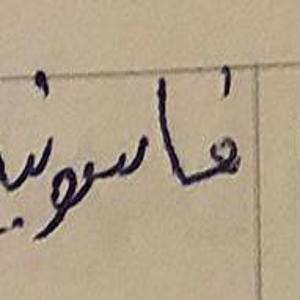 فاسونيـ